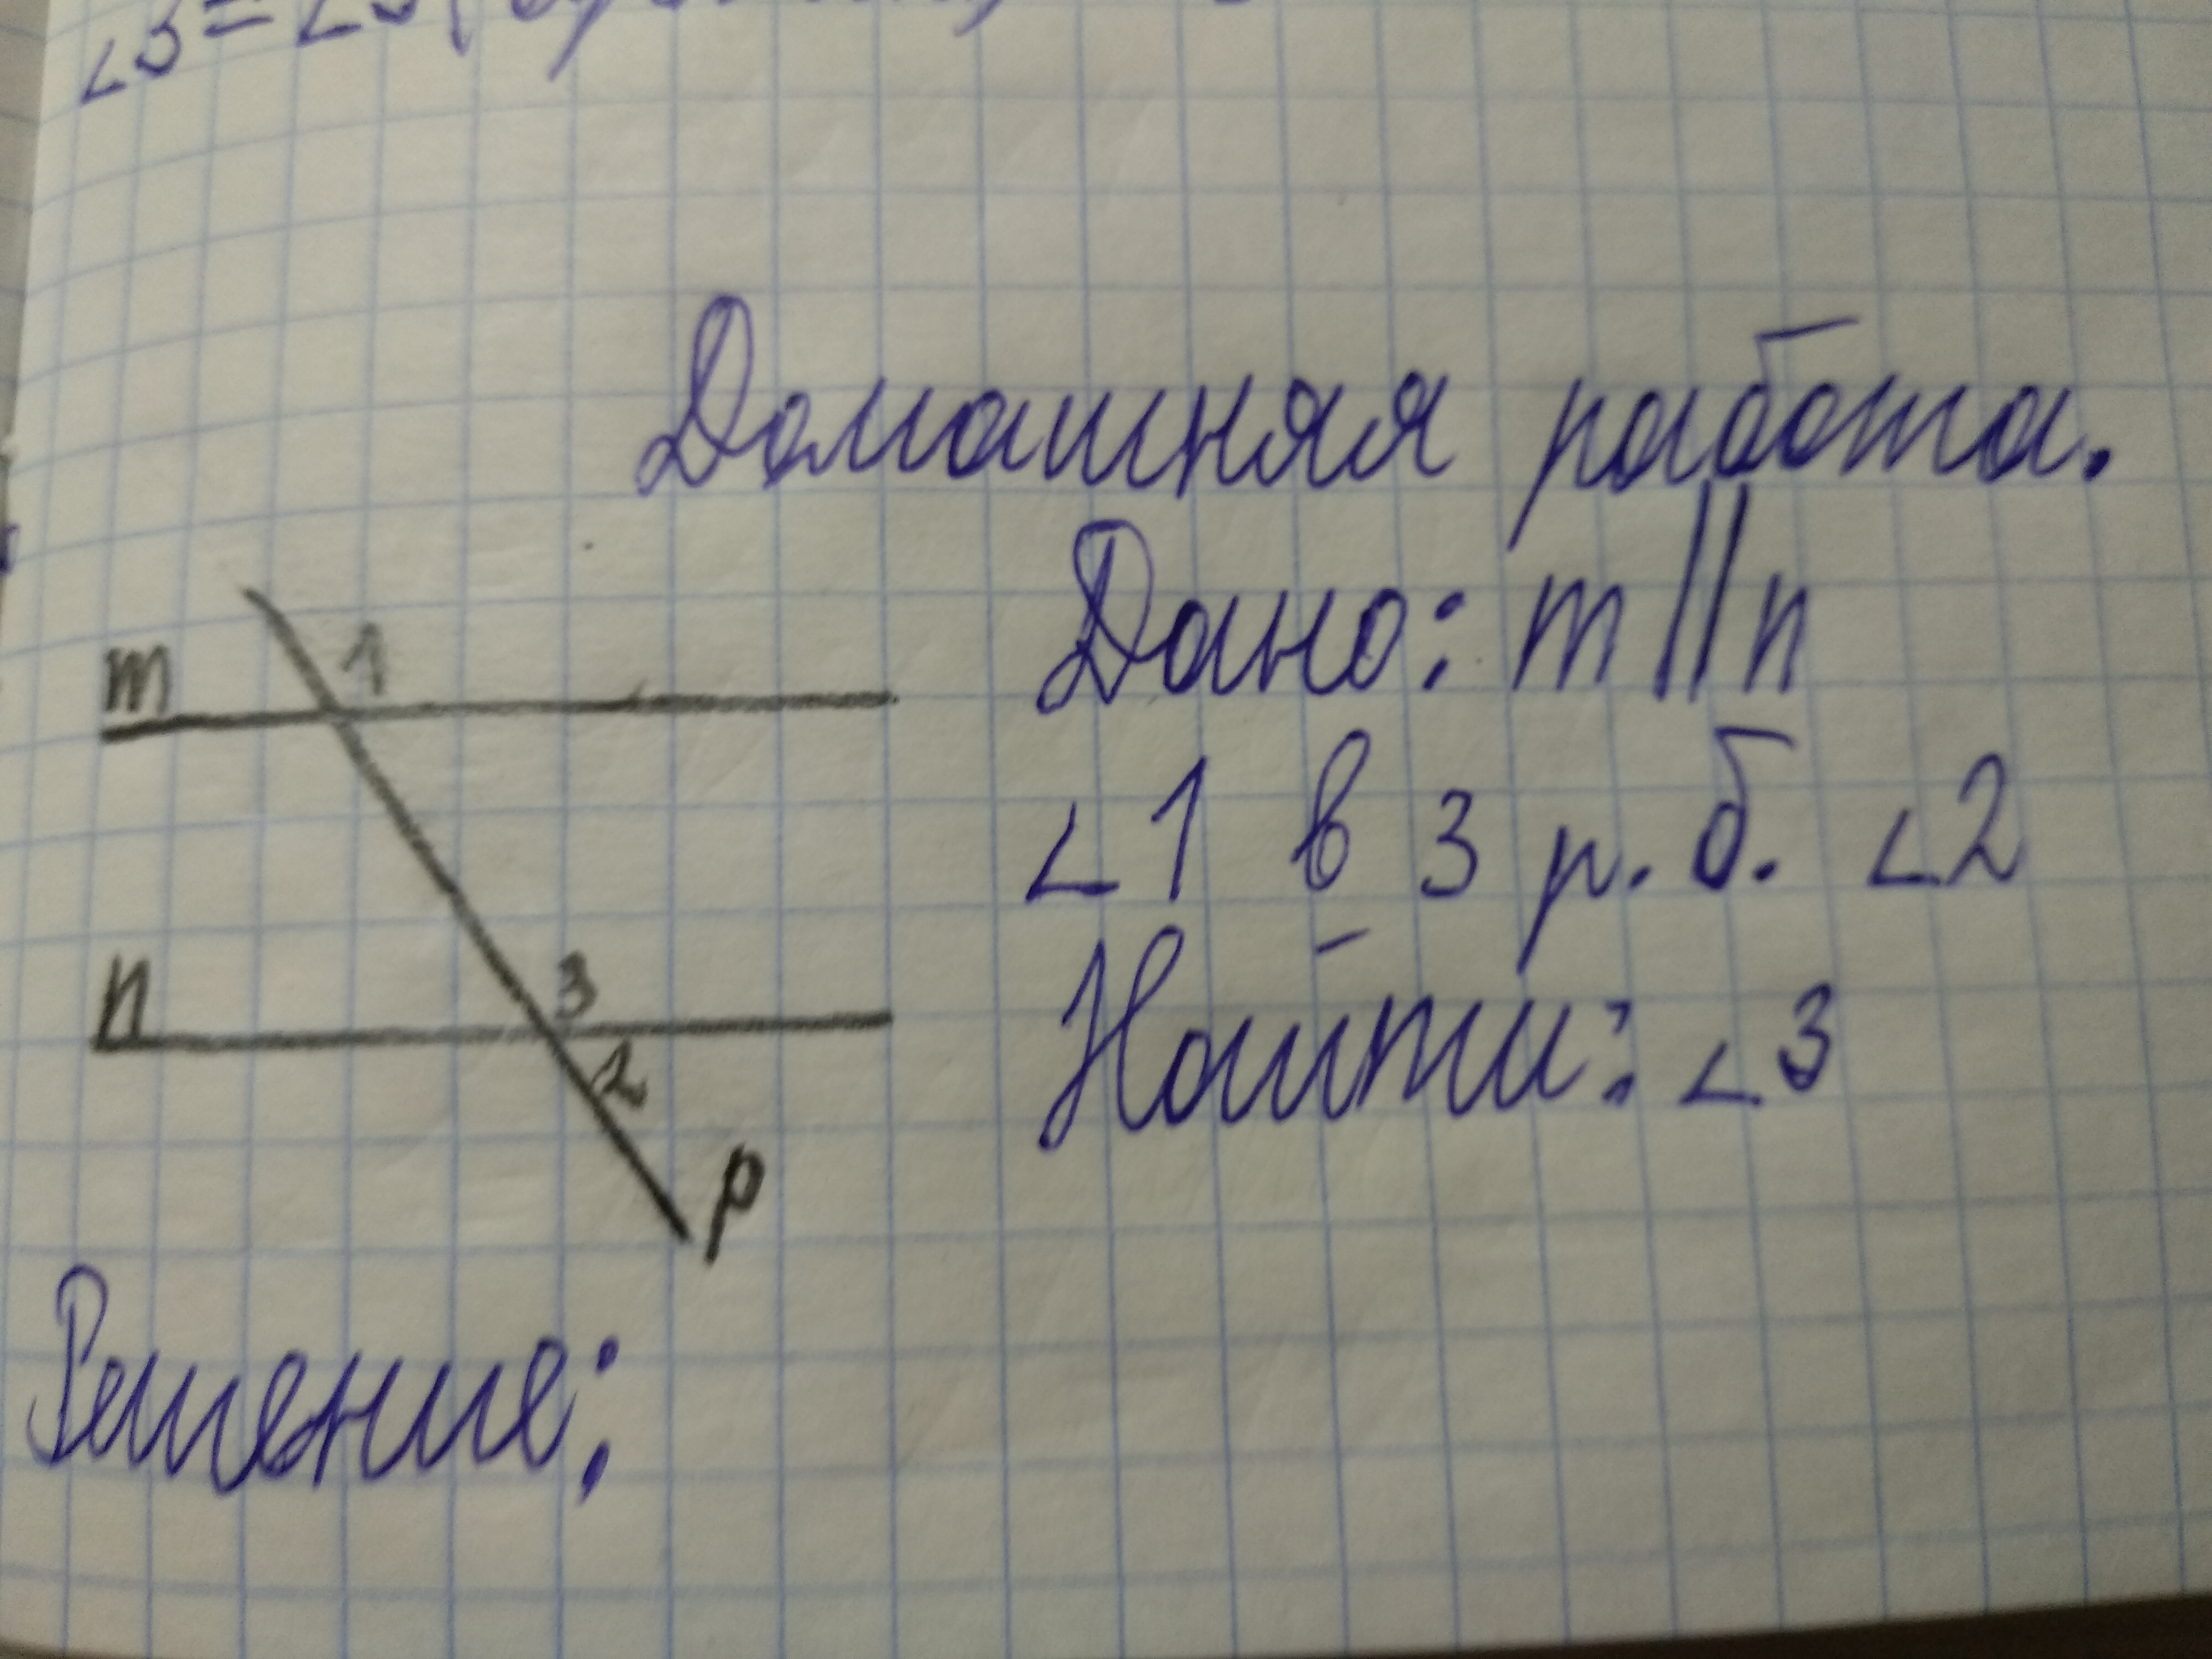 ∠3 =
Домашняя работа.
Дано: m || n
1
m
∠1 в 3 р. б. ∠2
n
3
Найти: ∠3
2
p
Решение: